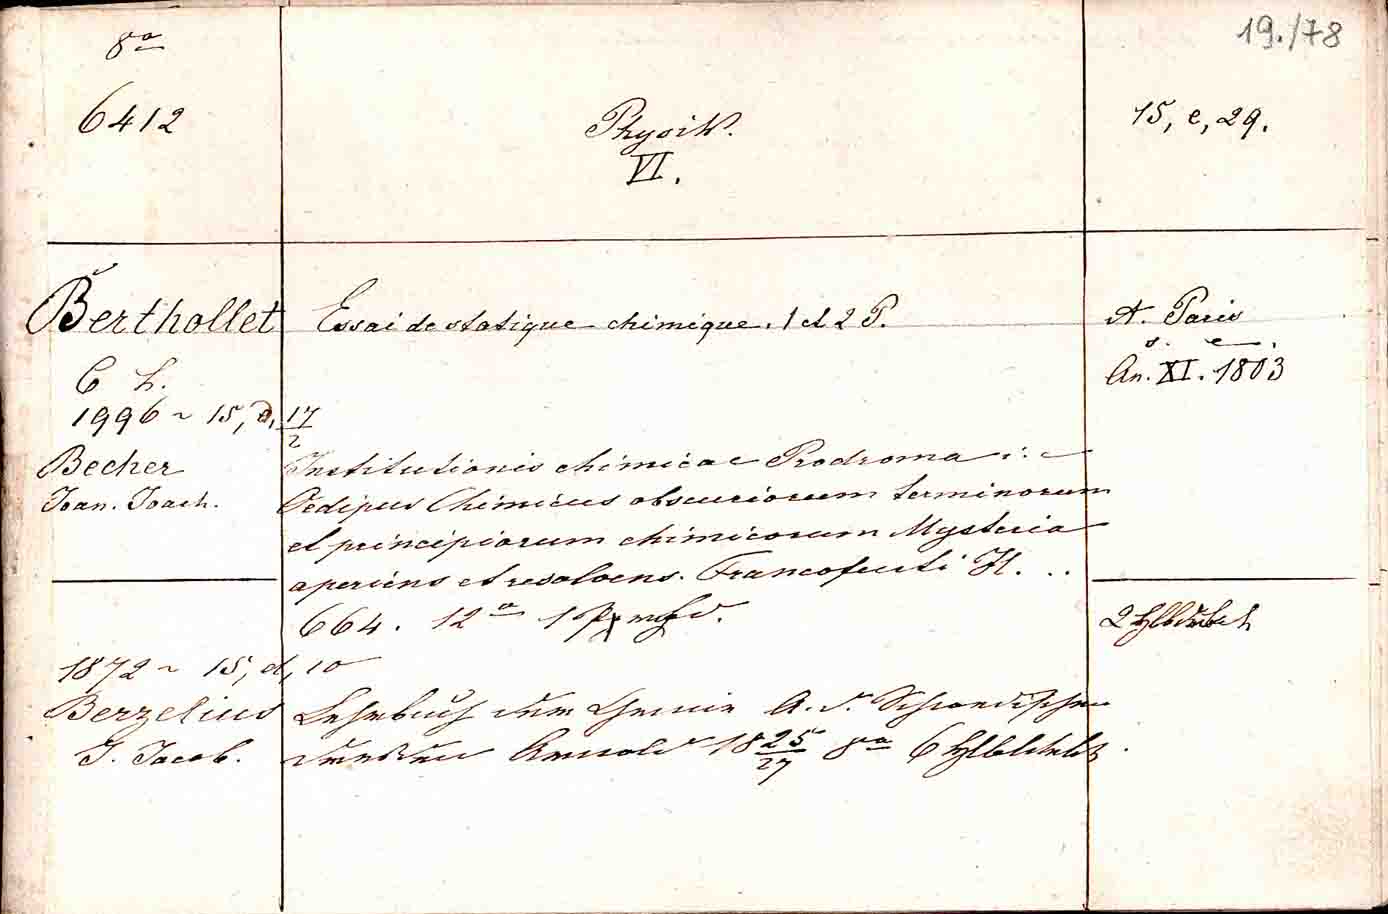 19./78
8º
6412
Physik.
VI.
15, e, 29.
Berthollet
Essai de statique chimique. 1 et 2 P.
A. Paris
An. XI. 1803
C h.
1996 ~ 15, d, 17/2
Becher
Institutionis chimicae Prodroma i. e
Joan. Joach.
Oedipus Chimicus obscuriorum terminorum
et principiorum chimicorum Mysteria
aperiens et resolvens. Francofurti
664. 12º 1
2 Hlblderbde
1872 ~ 15, d, 10
Berzelius
Lehrbuch der Chemie A. d. Schwedischen
J. Jacob.
Arnold 1825/27 8º 6